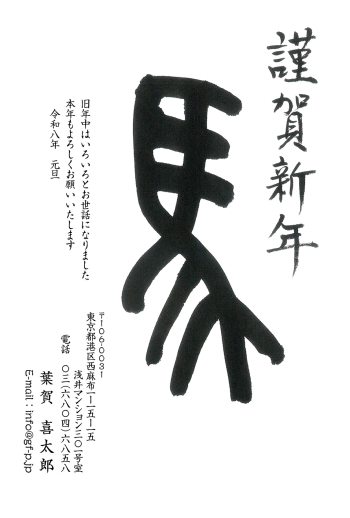 謹賀新年
馬
旧年中はいろいろとお世話になりました
本年もよろしくお願いいたします
令和八年　元旦
〒106-0031
東京都港区西麻布一ー一五ー一五
浅井マンション三〇一号室
電話　〇三(六八〇四)六八五八
葉賀　喜太郎
E-mail : info@gf-p.jp